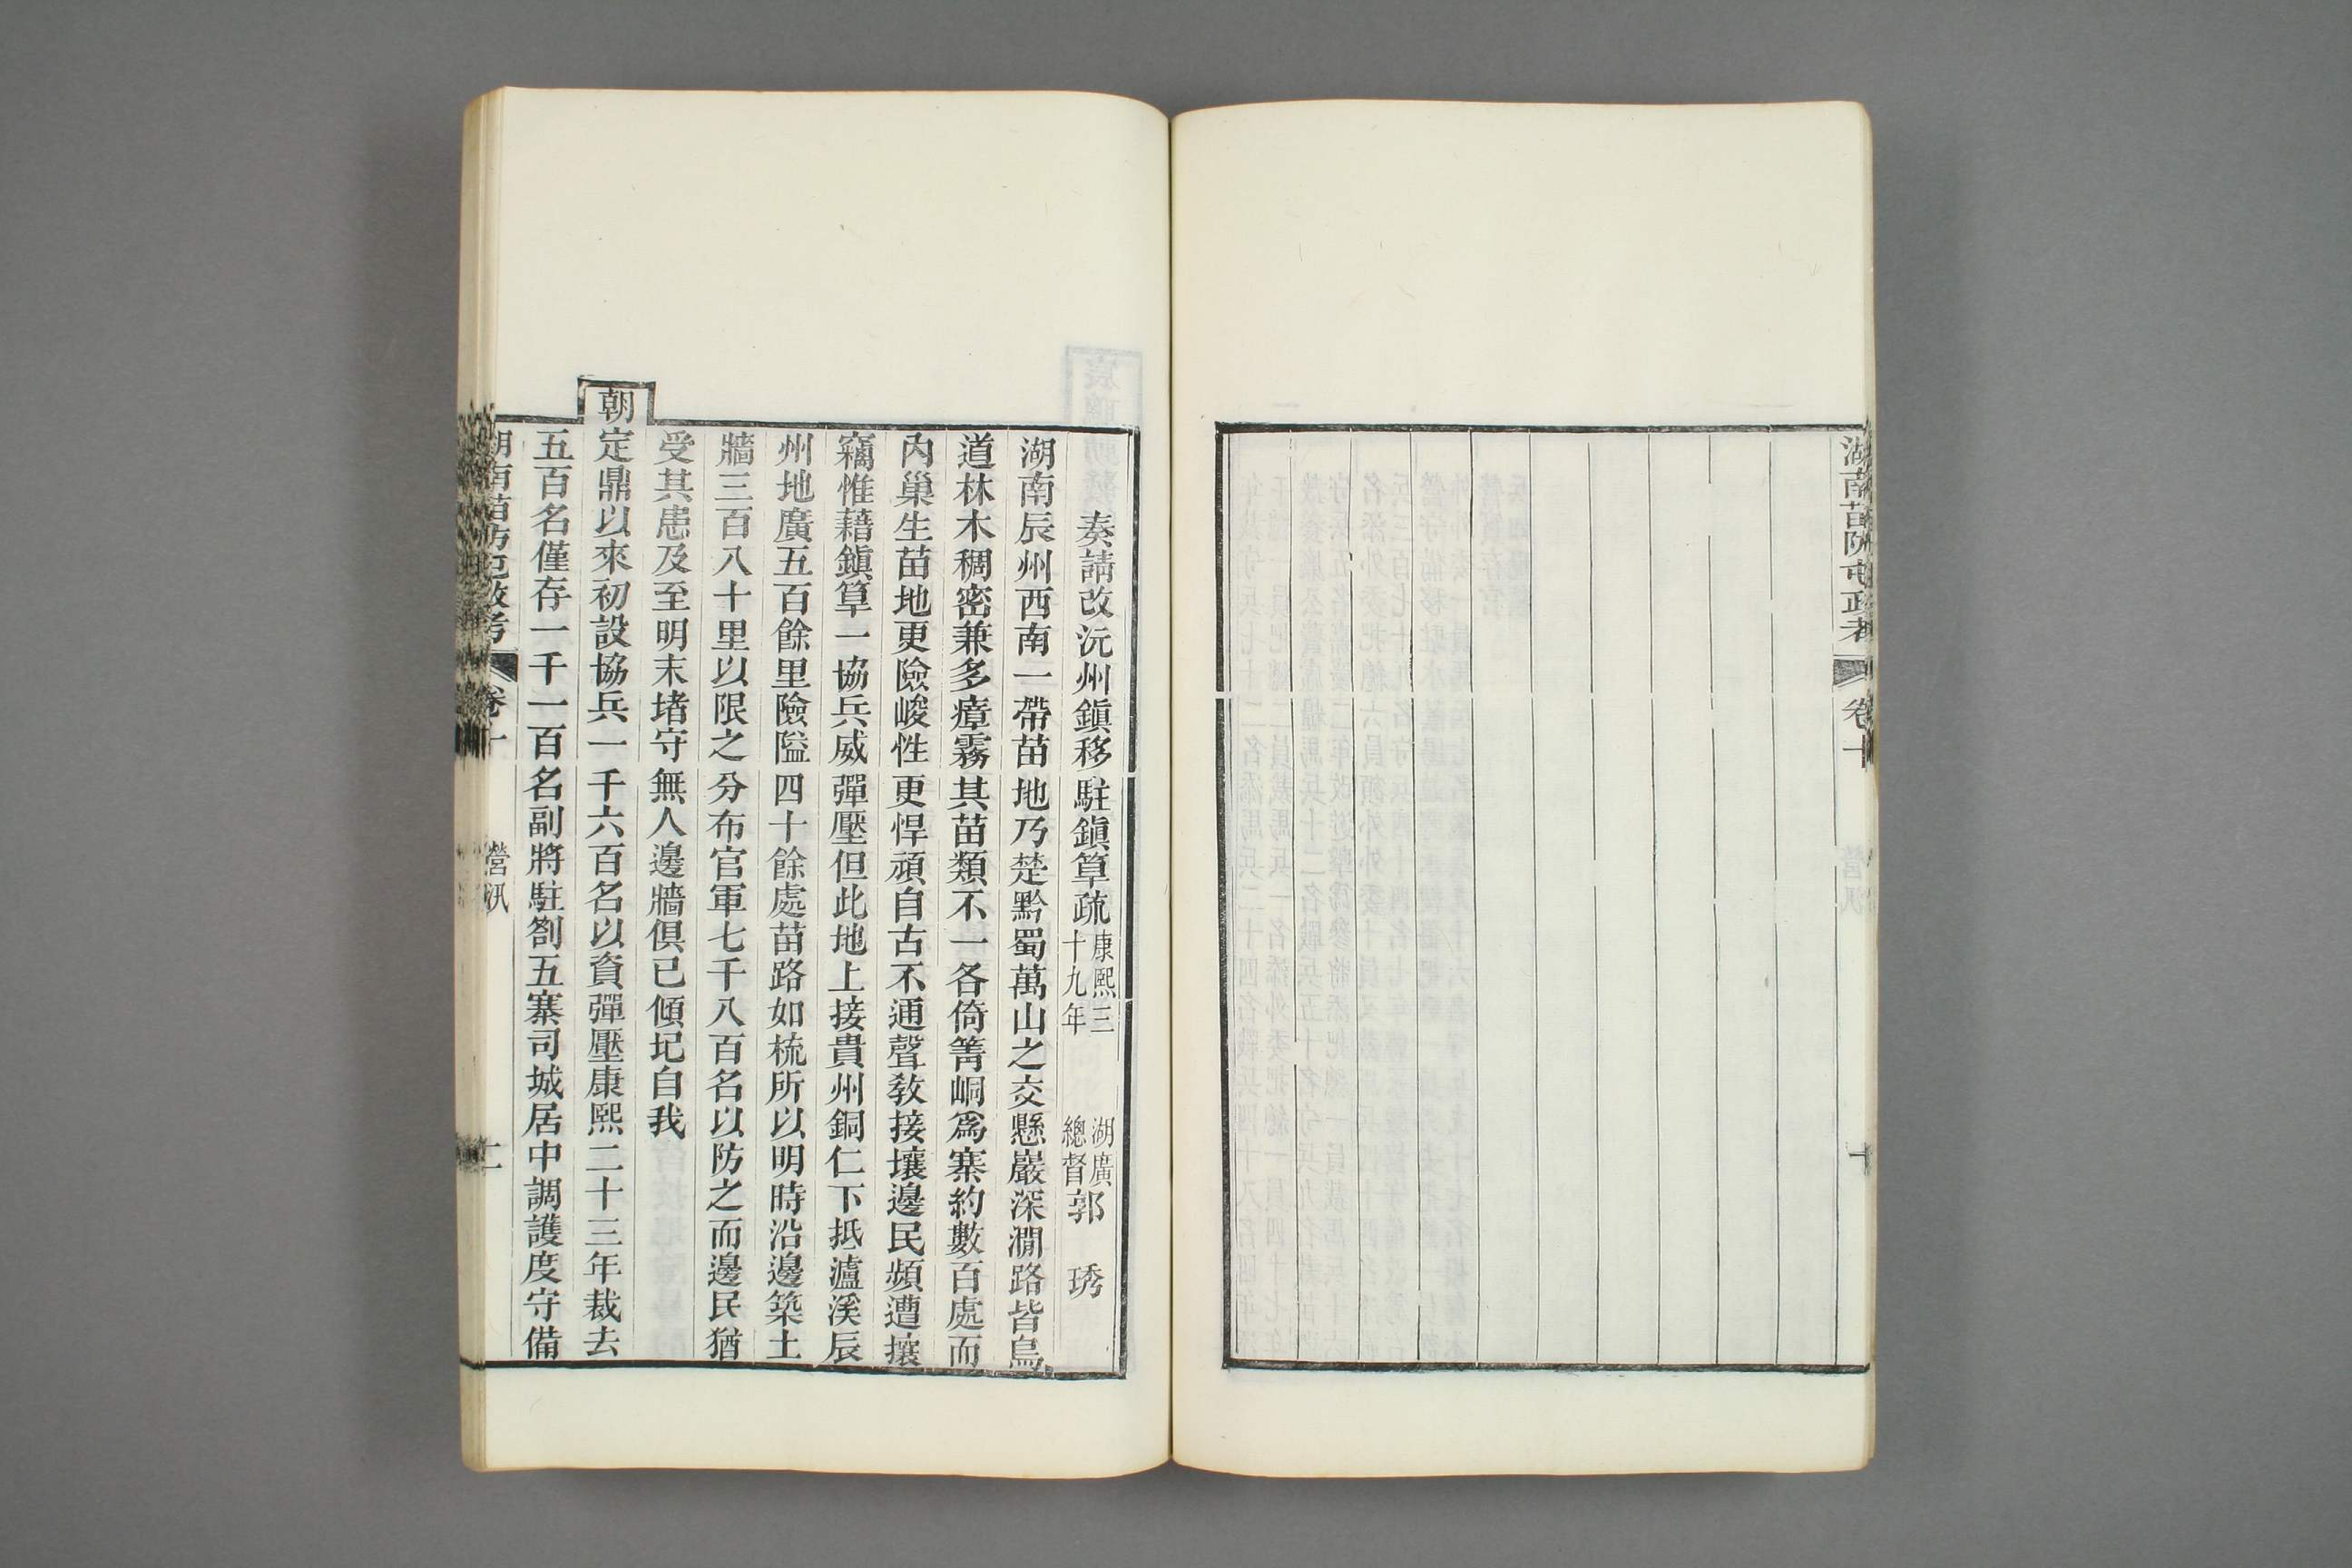 湖南苗防屯政考
卷十
十
奏請改沅州鎮移駐鎮筸疏康熙三十九年 湖廣總督郭 琇
湖南辰州西南一帶苗地乃楚黔蜀萬山之交懸巖深澗路皆鳥
道林木稠密兼多瘴霧其苗類不一各倚箐峒爲寨約數百處而
內巢生苗地更險峻性更悍頑自古不通聲敎接壤邊民頻遭攘
竊惟藉鎮筸一協兵威彈壓但此地上接貴州銅仁下抵瀘溪辰
州地廣五百餘里險隘四十餘處苗路如梳所以明時沿邊築土
牆三百八十里以限之分布官軍七千八百名以防之而邊民猶
受其患及至明末堵守無人邊牆俱已傾圮自我
朝定鼎以來初設協兵一千六百名以資彈壓康熙二十三年裁去
五百名僅存一千一百名副將駐劄五寨司城居中調護度守備
湖南苗防屯政考
卷十
營汛